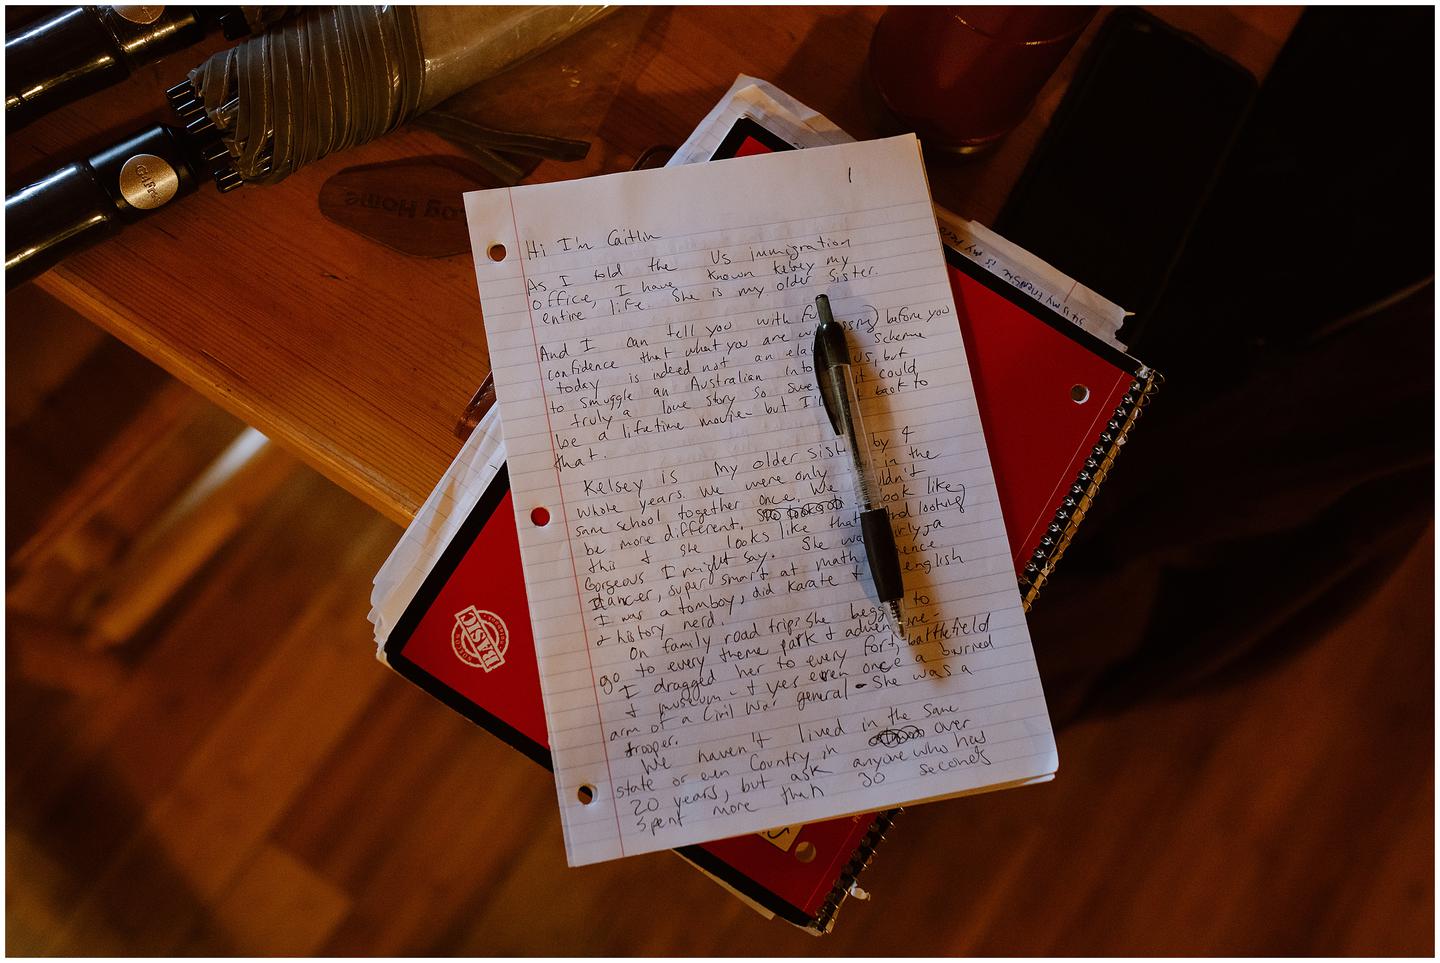 1
Hi I'm Caitlin
As I told the US immigration
office, I have known kelsey my
entire life. She is my older sister.
And I can tell you with
confidence that what you are before you
today is indeed not an scheme
to smuggle an Australian into US, but
truly a love story so it could
be a lifetime movie - but I'll back to
that.
Kelsey is my older by 4
whole years. We were only in the
same school together once. We
be more different. look like
this & she looks like that looking
Gorgeous I might say. She was girly, a
Dancer, super smart at math
I was a tomboy, did karate & english
& history nerd.
On family road trips She to
go to every theme park &
I dragged her to every fort, battlefield
& museum - & yes even once a buried
arm of a Civil War general - She was a
trooper.
We haven't lived in the same
state or even Country in over
20 years, but ask anyone who has
spent more than 30 seconds
BASIC
Log Home
is my hero